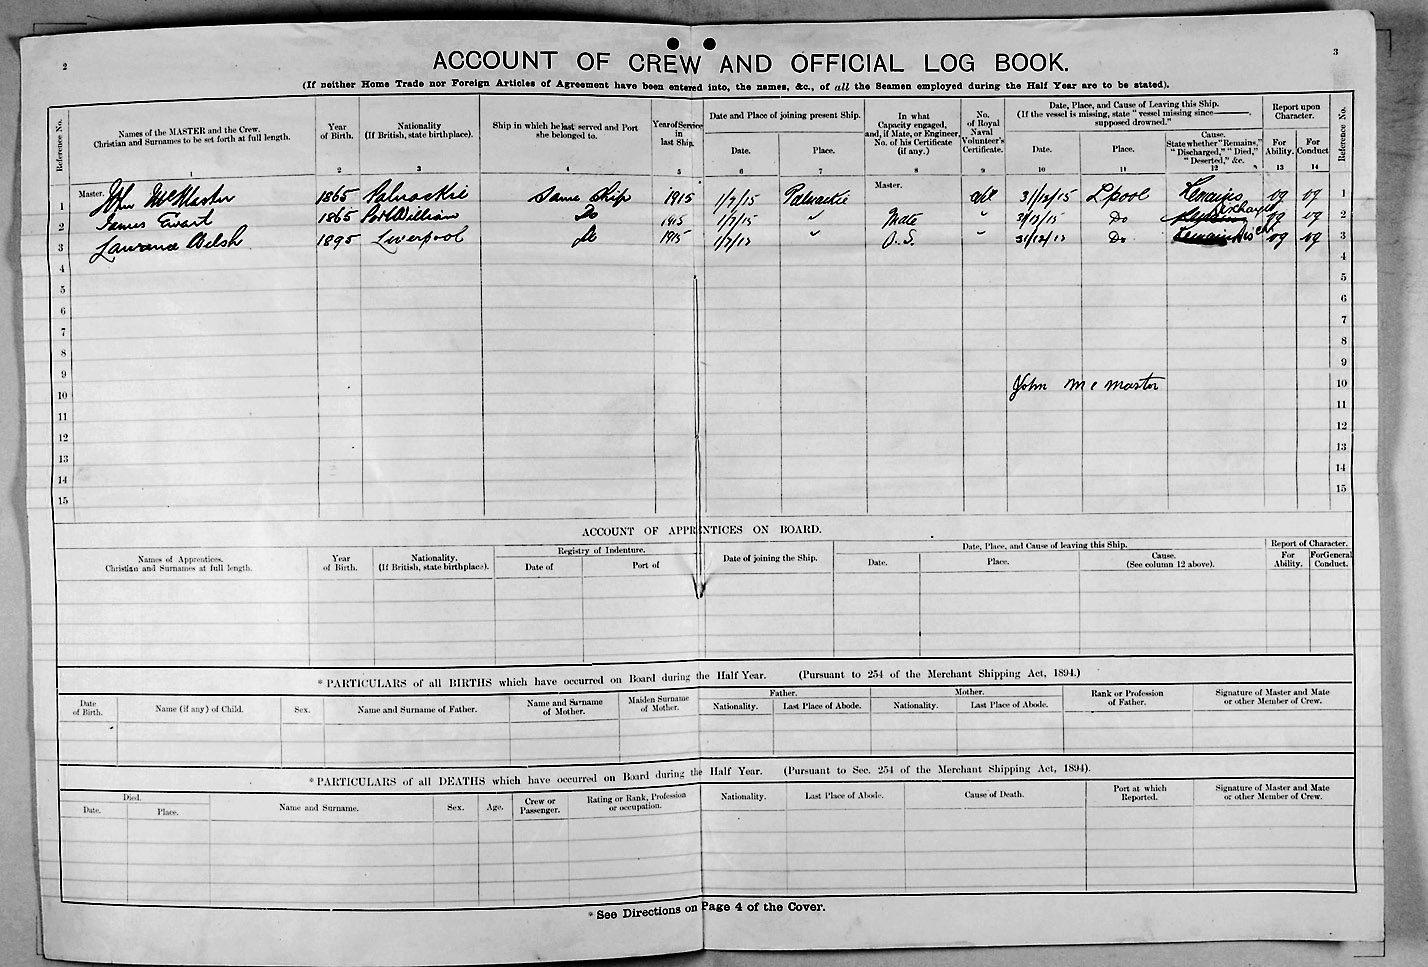 2
3
ACCOUNT OF CREW AND OFFICIAL LOG BOOK.
(If neither Home Trade nor Foreign Articles of Agreement have been entered into, the names, &c., of all the Seamen employed during the Half Year are to be stated).
Reference No. Names of the MASTER and the Crew. Christian and Surnames to be set forth at full length. Year of Birth. Nationality (If British, state birthplace). Ship in which he last served and Port she belonged to. Year of Service in last Ship. Date and Place of joining present Ship. Date. Place. In what Capacity engaged, and, if Mate, or Engineer, No. of his Certificate (if any.) No. of Royal Naval Volunteer's Certificate. Date, Place, and Cause of Leaving this Ship. (If the vessel is missing, state "vessel missing since———, supposed drowned." Date. Place. Cause. State whether "Remains," "Discharged," "Died," "Deserted," &c. Report upon Character. For Ability. For Conduct Reference No.
1 2 3 4 5 6 7 8 9 10 11 12 13 14
1 Master. John McMaster 1865 Palnackie Same Ship 1915 1/7/15 Palnackie Master. 31/12/15 Lpool Remains vg vg 1
2 James Ewart 1865 Port William Do 1915 1/7/15 " Mate " 31/12/15 Do Discharged vg vg 2
3 Laurance Welsh 1895 Liverpool Do 1915 1/7/15 " O.S. " 31/12/15 Do Disch vg vg 3
4 4
5 5
6 6
7 7
8 8
9 9
10 John McMaster 10
11 11
12 12
13 13
14 14
15 15
ACCOUNT OF APPRENTICES ON BOARD.
Names of Apprentices. Christian and Surnames at full length. Year of Birth. Nationality, (If British, state birthplace). Registry of Indenture. Date of Port of Date of joining the Ship. Date, Place, and Cause of leaving this Ship. Date. Place. Cause. (See column 12 above). Report of Character. For Ability. For General Conduct.
* PARTICULARS of all BIRTHS which have occurred on Board during the Half Year. (Pursuant to 254 of the Merchant Shipping Act, 1894.)
Date of Birth. Name (if any) of Child. Sex. Name and Surname of Father. Name and Surname of Mother. Maiden Surname of Mother. Father. Nationality. Last Place of Abode. Mother. Nationality. Last Place of Abode. Rank or Profession of Father. Signature of Master and Mate or other Member of Crew.
* PARTICULARS of all DEATHS which have occurred on Board during the Half Year. (Pursuant to Sec. 254 of the Merchant Shipping Act, 1894).
Died. Date. Place. Name and Surname. Sex. Age. Crew or Passenger. Rating or Rank, Profession or occupation. Nationality. Last Place of Abode. Cause of Death. Port at which Reported. Signature of Master and Mate or other Member of Crew.
* See Directions on Page 4 of the Cover.